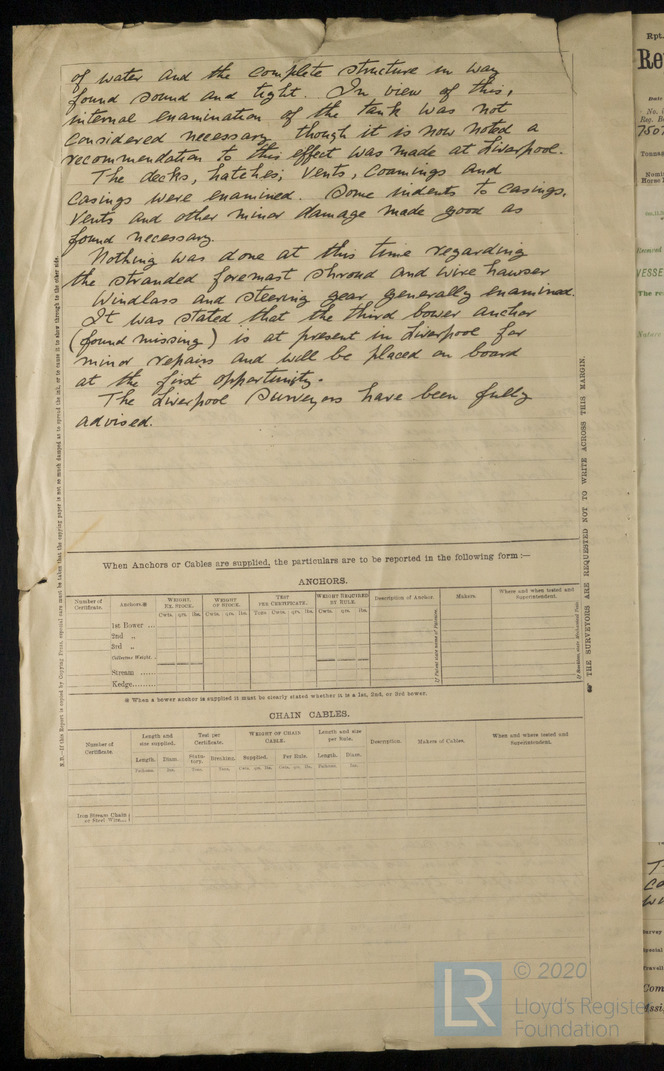 of water and the complete structure in way
found sound and tight. In view of this,
internal examination of the tank was not
considered necessary though it is now noted a
recommendation to this effect was made at Liverpool.
The decks, hatches, vents, coamings and
casings were examined. Some indents to casings,
vents and other minor damage made good as
found necessary.
Nothing was done at this time regarding
the stranded foremast shroud and wire hawser
Windlass and steering gear generally examined.
It was stated that the third bower anchor
(found missing) is at present in Liverpool for
minor repairs and will be placed on board
at the first opportunity.
The Liverpool Surveyors have been fully
advised.
N.B.—If this Report is copied by Copying Press, especial care must be taken that the copying paper is not so much damped as to spread the ink, or to cause it to show through to the other side.
THE SURVEYORS ARE REQUESTED NOT TO WRITE ACROSS THIS MARGIN.
When Anchors or Cables are supplied, the particulars are to be reported in the following form :—
ANCHORS.
Number of Certificate.
Anchors.
WEIGHT. EX. STOCK.
WEIGHT OF STOCK.
TEST PER CERTIFICATE.
WEIGHT REQUIRED BY RULE.
Description of Anchor.
Makers.
Where and when tested and Superintendent.
Cwts. qrs. lbs.
Cwts. qrs. lbs.
Tons Cwts. qrs. lbs.
Cwts. qrs. lbs.
1st Bower ...
2nd „
3rd „
Collective Weight.
Stream ......
Kedge.........
If Patent state name of Patentee.
※ When a bower anchor is supplied it must be clearly stated whether it is a 1st, 2nd, or 3rd bower.
CHAIN CABLES.
Number of Certificate.
Length and size supplied.
Test per Certificate.
WEIGHT OF CHAIN CABLE.
Length and size per Rule.
Description.
Makers of Cables.
When and where tested and Superintendent.
Length. Diam. Statutory. Breaking. Supplied. Per Rule. Length. Diam.
Fathoms. Ins. Tons. Tons. Cwts. qrs. lbs. Cwts. qrs. lbs. Fathoms. Ins.
Iron Stream Chain or Steel Wire....
Rpt.
Re
No.
Reg.
7507
Tonnag
Nomi
Horse
Received
VESSE
The re
Nature
T
co
wi
Survey
Special
Travell
Com
Assi
LR
© 2020
Lloyd's Register
Foundation